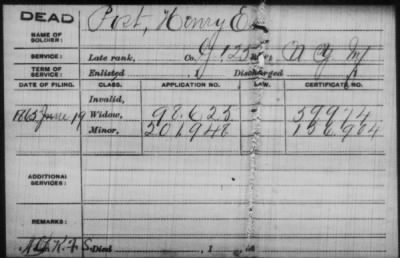 DEAD
NAME OF SOLDIER: Post, Henry E.
SERVICE: Late rank, Co. G, 125 N Y Inf
TERM OF SERVICE: Enlisted Discharged
DATE OF FILING. CLASS. APPLICATION NO. LAW. CERTIFICATE NO.
Invalid,
1865 June 19 Widow, 98.625
Minor, 201.948 136.904
ADDITIONAL SERVICES:
REMARKS:
Died , 1 , at